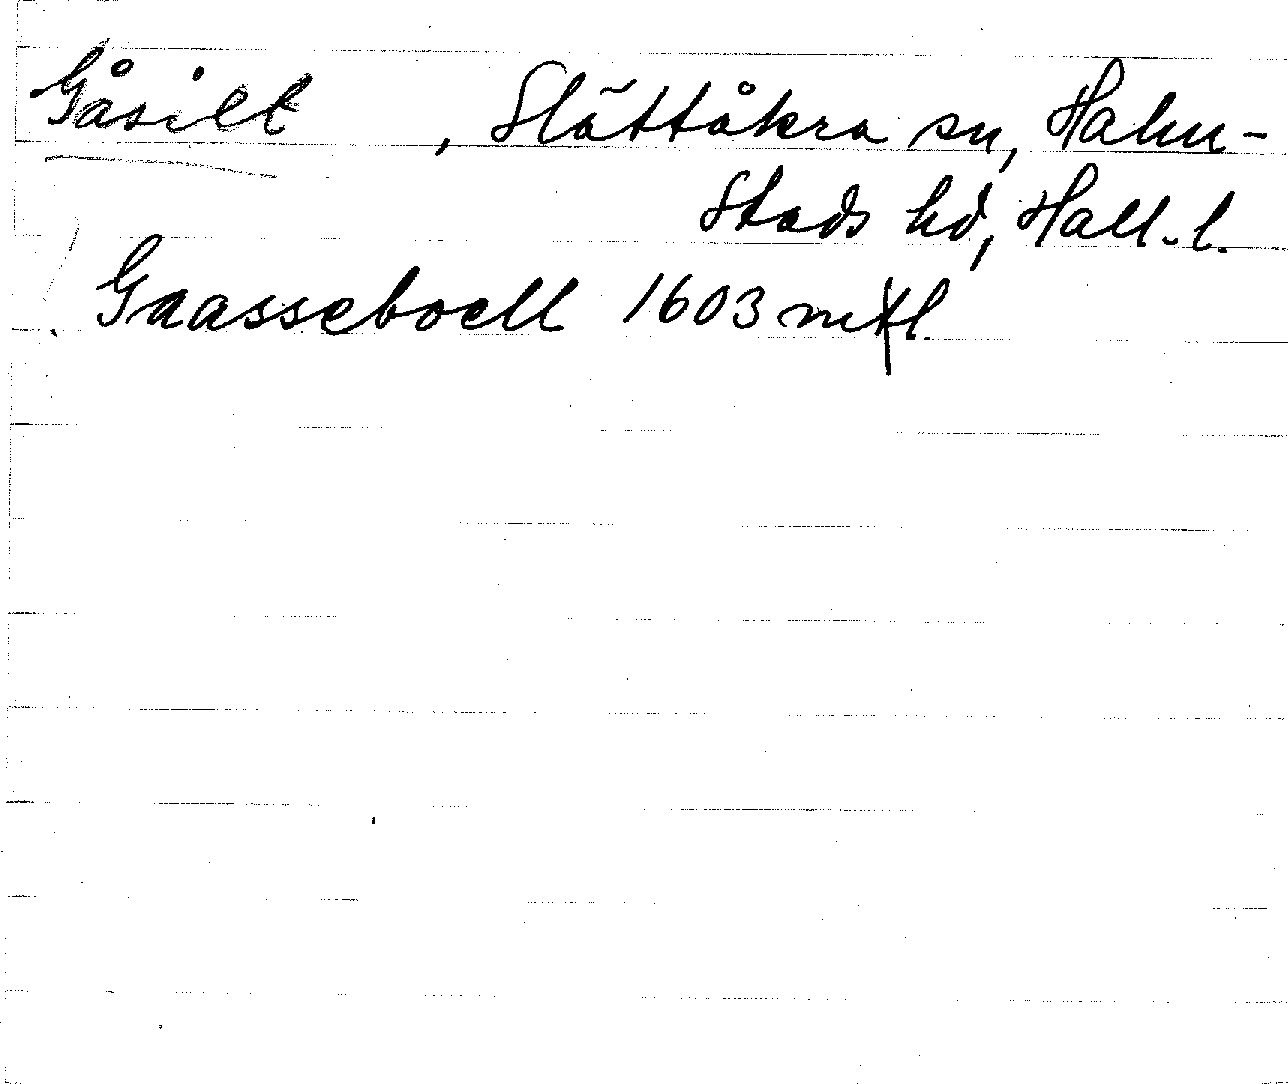 Gåsilt , Slättåkra sn, Halm-
stads hd, Hall. l.
Gaasseboell 1603 mtl.